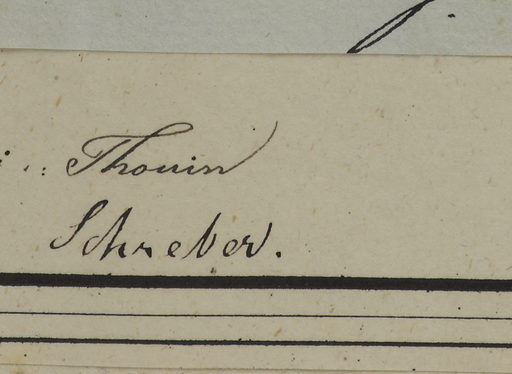 Thouin
Schreber.